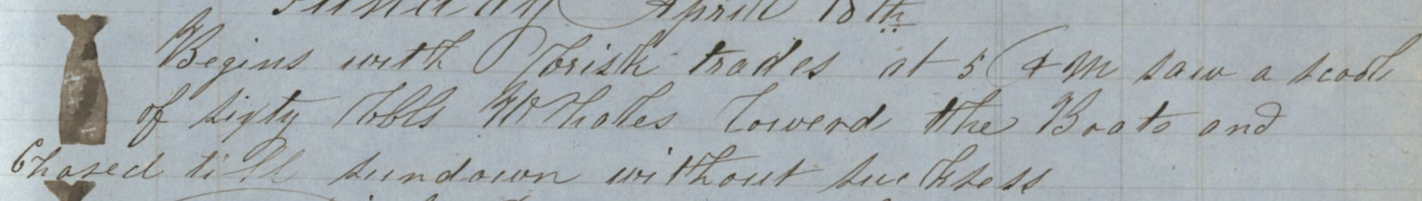 Sunday April 18th
Begins with brisk trades at 5 PM saw a scool
of sixty bbls Whales lowerd the Boats and
Chased till sundown without sucksess